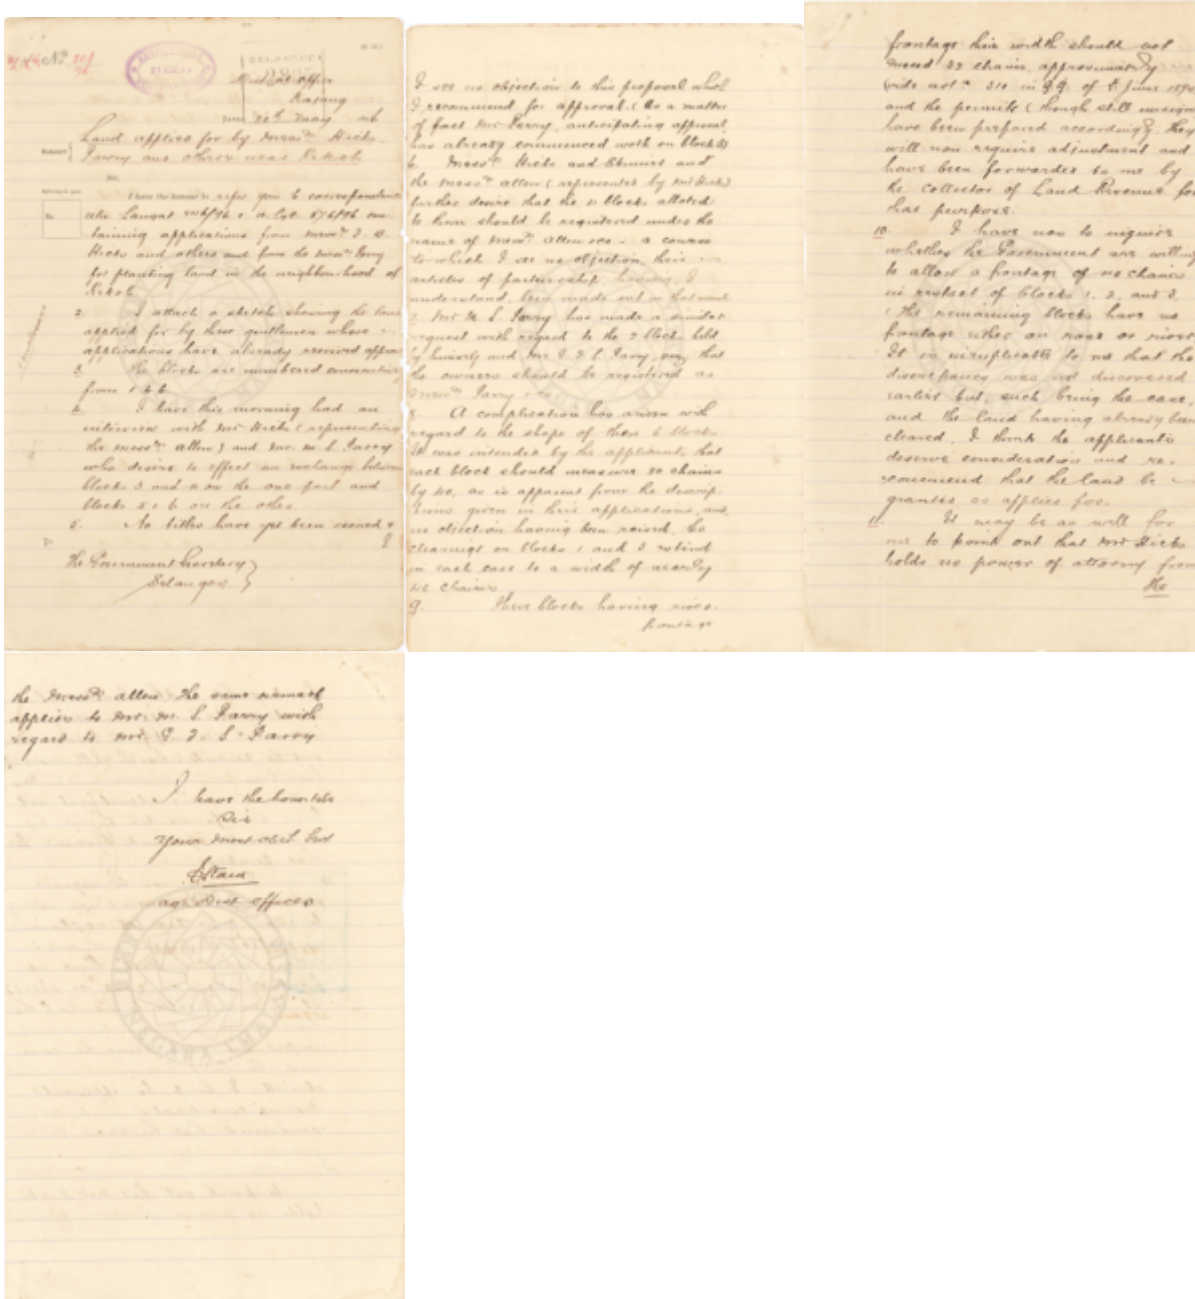 No 201/96
SELANGOR
District Office
Kajang
30th May 96
Land applied for by Messrs Hicks
Parry and others near Reko
Sir,
I have the honour to refer you to correspondence
in Langat
containing applications from Messrs
Hicks and others and from the Messrs Parry
for planting land in the neighbourhood of
Reko
2. I attach a sketch showing the land
applied for by these gentlemen whose
applications have already received approval
3. The blocks are numbered consecutively
from 1 to 6
4. I have this morning had an
interview with Mr Hicks (representing
the Messrs Allen) and Mr. M. S. Parry
who desire to effect an exchange between
blocks 3 and 4 on the one part and
blocks 5 & 6 on the other
5. No titles have yet been issued &
I
To
The Government Secretary
Selangor
I see no objection to this proposal which
I recommend for approval. (As a matter
of fact Mr Parry, anticipating approval,
has already commenced work on block 3)
6. Messrs Hicks and and
the Messrs Allen (represented by Mr Hicks)
further desire that the 4 blocks allotted
to them should be registered under the
name of Messrs Allen &Co - a course
to which I see no objection, their
articles of partnership having, I
understand, been made out in that name
7. Mr M. S. Parry has made a similar
request with regard to the 2 blocks held
by himself and Mr G. F. S. Parry, that
the owners should be registered as
Messrs Parry & Co.
8. A complication has arisen with
regard to the shape of these 6 blocks
It was intended by the applicants that
each block should measure 80 chains
by 40, as is apparent from the descrip
tions given in their applications, and,
no objection having been raised, the
clearings on blocks 1 and 3 extend
in each case to a width of nearly
40 chains
9. These blocks having river
frontage
frontage their width should not
exceed 22 chains, approximately
(vide Not. 310 in G.G. of June 1894)
and the permits (though still unsigned)
have been prepared accordingly. They
will now require adjustment and
have been forwarded to me by
the Collector of Land Revenue for
this purpose.
10. I have now to inquire
whether the Government are willing
to allow a frontage of 40 chains
in respect of blocks 1, 2, and 3.
(The remaining blocks have no
frontage either on road or river)
It is inexplicable to me that the
discrepancy was not discovered
earlier but, such being the case,
and the land having already been
cleared, I think the applicants
deserve consideration and re-
commend that the land be
granted as applied for.
11. It may be as well for
me to point out that Mr Hicks
holds no power of attorney from
the
the Messrs Allen The same remark
applies to Mr. M. S. Parry with
regard to Mr. G. F. S. Parry
I have the honor to be
Sir
Your most obdt Servt
Ag. Dist Officer